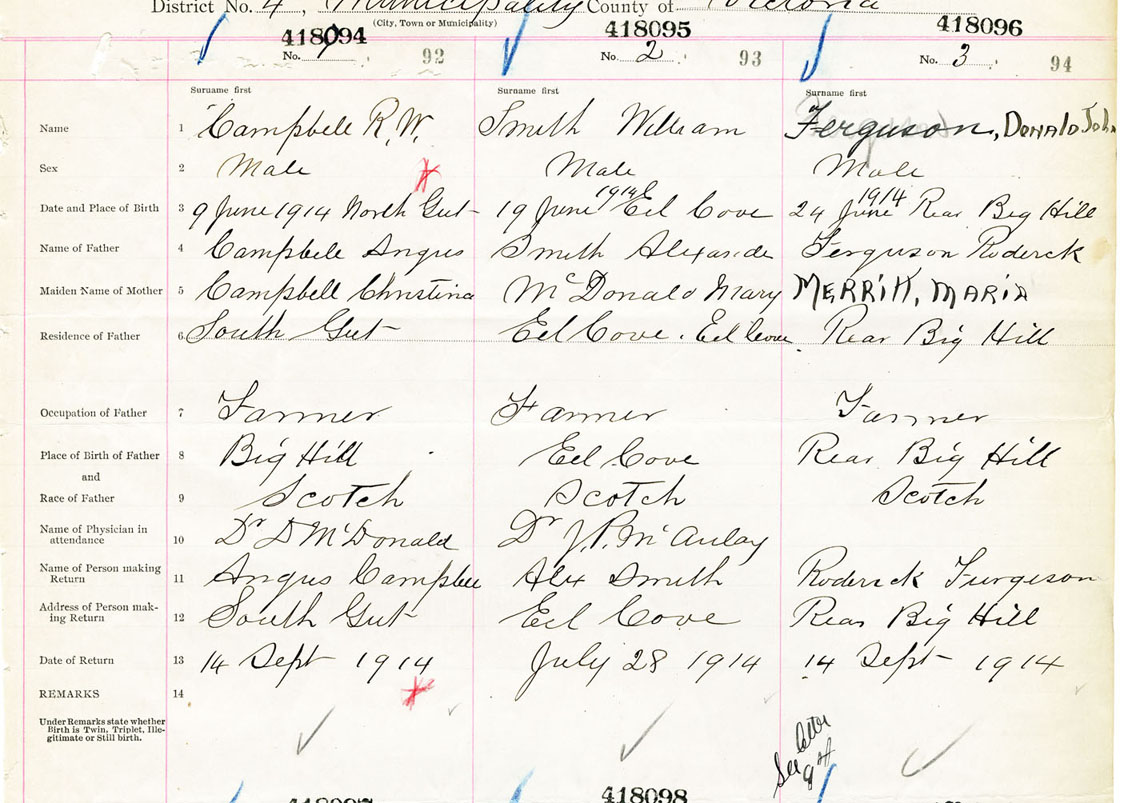 District No. 4, Municipality County of Victoria
(City, Town or Municipality)
418094 418095 418096
No. 1 92 No. 2 93 No. 3 94
Surname first Surname first Surname first
Name 1 Campbell R. W. Smith William Ferguson, Donald John
Sex 2 Male Male Male
1914 1914
Date and Place of Birth 3 9 June 1914 North Gut 19 June Eel Cove 24 June Rear Big Hill
Name of Father 4 Campbell Angus Smith Alexander Ferguson Roderick
Maiden Name of Mother 5 Campbell Christina McDonald Mary MERRITT, MARIA
Residence of Father 6 South Gut Eel Cove. Eel Cove Rear Big Hill
Occupation of Father 7 Farmer Farmer Farmer
Place of Birth of Father 8 Big Hill Eel Cove Rear Big Hill
and
Race of Father 9 Scotch Scotch Scotch
Name of Physician in
attendance 10 Dr D McDonald Dr J. P. McAulay
Name of Person making
Return 11 Angus Campbell Alex Smith Roderick Furgeson
Address of Person mak-
ing Return 12 South Gut Eel Cove Rear Big Hill
Date of Return 13 14 Sept 1914 July 28 1914 14 Sept 1914
REMARKS 14
Under Remarks state whether
Birth is Twin, Triplet, Ille-
gitimate or Still birth.
See letter
418098